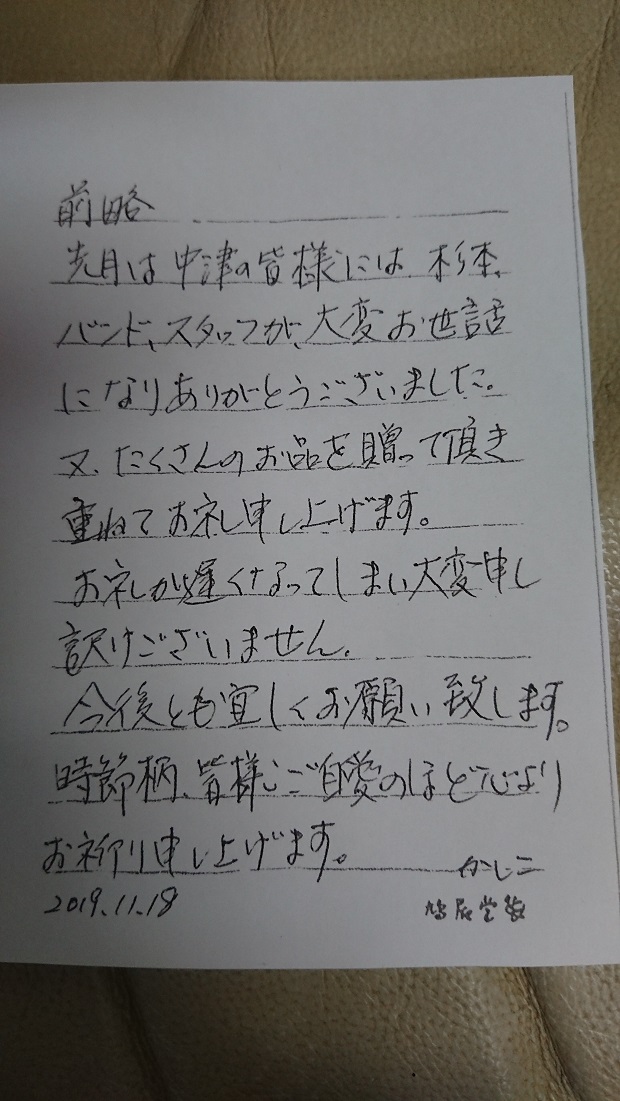 前略
先月は中津の皆様には 杉本、
バンド、スタッフが、大変お世話
になりありがとうございました。
又、たくさんのお品を贈って頂き
重ねてお礼申し上げます。
お礼が遅くなってしまい大変申し
訳けございません。
今後とも宜しくお願い致します。
時節柄、皆様ご自愛のほど心より
お祈り申し上げます。 かしこ
2019.11.18 鳩居堂製